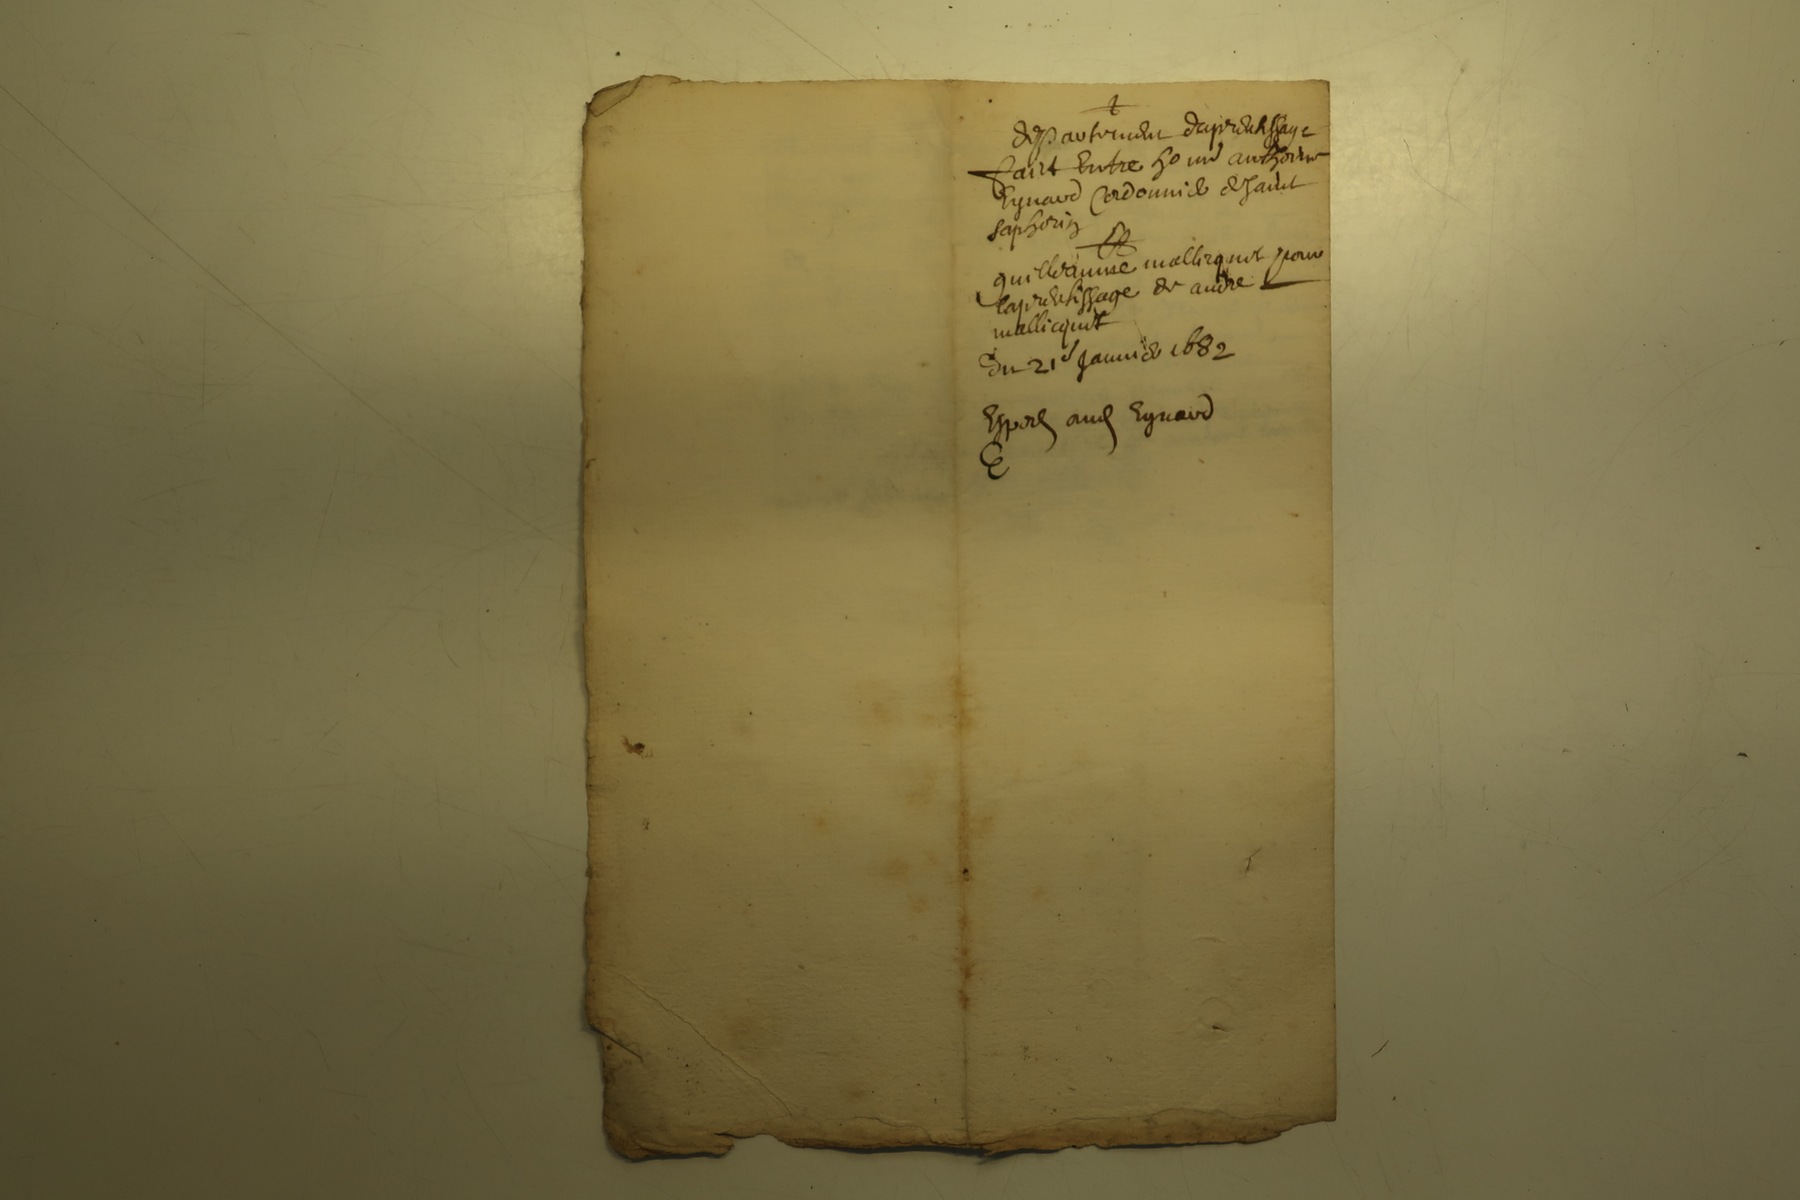 departement daprentissage
faict Entre ho anthoine
Eynard Cordonnier de saint
saphorin
Et
guilliaume mallicquet pour
laprentissage de andre
mallicquet
Du 21e Janvier 1682
Eynard